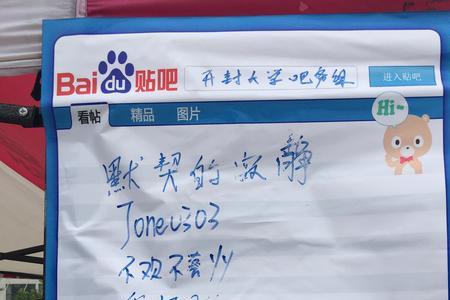 Bai du 贴吧
开封大学吧务组
进入贴吧
看帖 精品 图片
Hi~
默契的寂静
Joneu303
不欢不艺yy